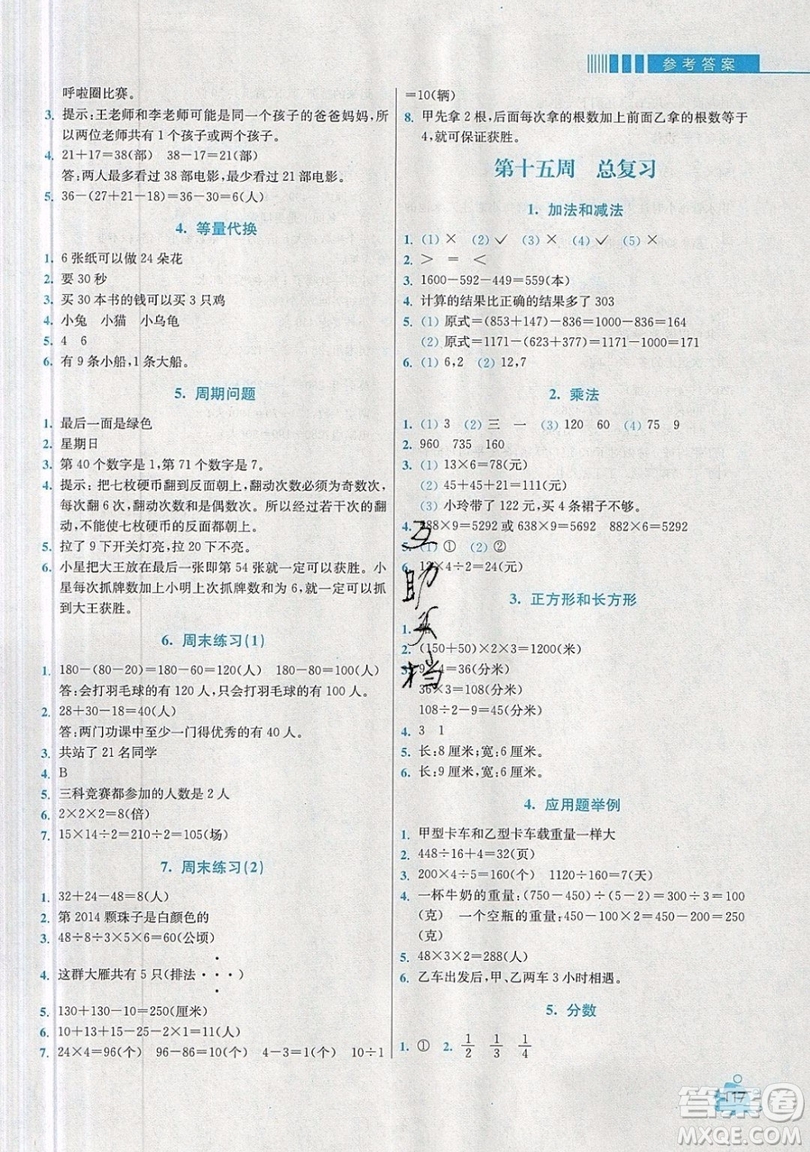 参考答案
呼啦圈比赛。
3. 提示:王老师和李老师可能是同一个孩子的爸爸妈妈,所
以两位老师共有1个孩子或两个孩子。
4. 21+17=38(部) 38-17=21(部)
答:两人最多看过38部电影,最少看过21部电影。
5. 36-(27+21-18)=36-30=6(人)
4. 等量代换
1. 6张纸可以做24朵花
2. 要30秒
3. 买30本书的钱可以买3只鸡
4. 小兔 小猫 小乌龟
5. 4 6
6. 有9条小船,1条大船。
5. 周期问题
1. 最后一面是绿色
2. 星期日
3. 第40个数字是1,第71个数字是7。
4. 提示:把七枚硬币翻到反面,翻动次数必须为奇数次,
每次翻6次,翻动次数和是偶数次。所以,无论怎样翻
动,不能使七枚硬币的反面都朝上。
5. 拉了9下开关灯亮,拉20下不亮。
6. 小星把大王放在最后一张即第54张就一定可以获胜。
小星每次抓牌数加上小明上次抓牌数和为6就一定可
以抓到大王获胜。
6. 周末练习(1)
1. 180-(80-20)=180-60=120(人) 180-80=100(人)
答:会打羽毛球的有120人,只会打羽毛球的有100人。
2. 28+30-18=40(人)
答:两门功课中至少一门得优秀的有40人。
3. 共站了21名同学
4. B
5. 三科竞赛都参加的人数是2人
6. 2×2×2=8(倍)
7. 15×14÷2=210÷2=105(场)
7. 周末练习(2)
1. 32+24-48=8(人)
2. 第2014颗珠子是白颜色的
3. 48÷8÷3×5×6=60(公顷)
4. 这群大雁共有5只(排法···)
5. 130+130-10=250(厘米)
6. 10+13+15-12-17+2=11(人)
7. 24×4=96(个) 96-86=10(个) 4-3=1(个) 10÷1
=10(辆)
8. 甲先拿2根,后面每次拿的根数加上前面乙拿的根数等于
4,就可保证获胜。
第十五周 总复习
1. 加法和减法
1. (1) × (2) ✓ (3) × (4) ✓ (5) ×
2. > = <
3. 1600-592-449=559(本)
4. 计算的结果比正确的结果多了303
5. (1) 原式=(853+147)-836=1000-836=164
(2) 原式=1171-(623+377)=1171-1000=171
6. (1) 6,2 (2) 12,7
2. 乘法
1. (1) 3 (2) 三 一 (3) 120 60 (4) 75 9
2. 960 735 160
3. (1) 13×6=78(元)
(2) 45+45+21=111(元)
(3) 小玲带了122元,买4条裙子不够。
4. 588×9=5292或638×9=5292 882×6=5292
5. (1) ① (2) ②
6. 12×4÷2=24(元)
3. 正方形和长方形
1.
2. (150+50)×2×3=1200(米)
3. 9×4=36(分米)
36×3=108(分米)
108÷2-9=45(分米)
4. 3 1
5. 长:8厘米;宽:6厘米
6. 长:9厘米;宽:6厘米
4. 应用题举例
1. 甲型卡车和乙型卡车载重量一样大
2. 448÷16+4=32(页)
3. 200×4÷5=160(个) 160÷32=5(个)
4. 一杯牛奶的重量:(750-450)÷(5-2)=300÷3=100
(克) 一个空瓶的重量:450-100×2=450-200=250
(克)
5. 48×3×2=288(人)
6. 乙车出发后,甲、乙两车3小时相遇。
5. 分数
1. ① 2. 1/2 1/3 1/4
互助文档
117
答案圈
MXQE.COM